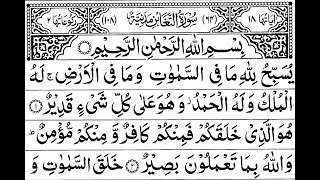 اٰیَاتُهَا ۱۸ (۶۴) سُوْرَةُ التَّغَابُنِ مَدَنِیَّةٌ (۱۰۸) رُكُوْعَاتُهَا ۲
بِسْمِ اللّٰهِ الرَّحْمٰنِ الرَّحِیْمِ
یُسَبِّحُ لِلّٰهِ مَا فِی السَّمٰوٰتِ وَمَا فِی الْاَرْضِ ۚ لَهُ
الْمُلْكُ وَلَهُ الْحَمْدُ ؗ وَهُوَ عَلٰی كُلِّ شَیْءٍ قَدِیْرٌ ۝۱
هُوَ الَّذِیْ خَلَقَكُمْ فَمِنْكُمْ كَافِرٌ وَّ مِنْكُمْ مُّؤْمِنٌ ؕ
وَاللّٰهُ بِمَا تَعْمَلُوْنَ بَصِیْرٌ ۝۲ خَلَقَ السَّمٰوٰتِ وَ